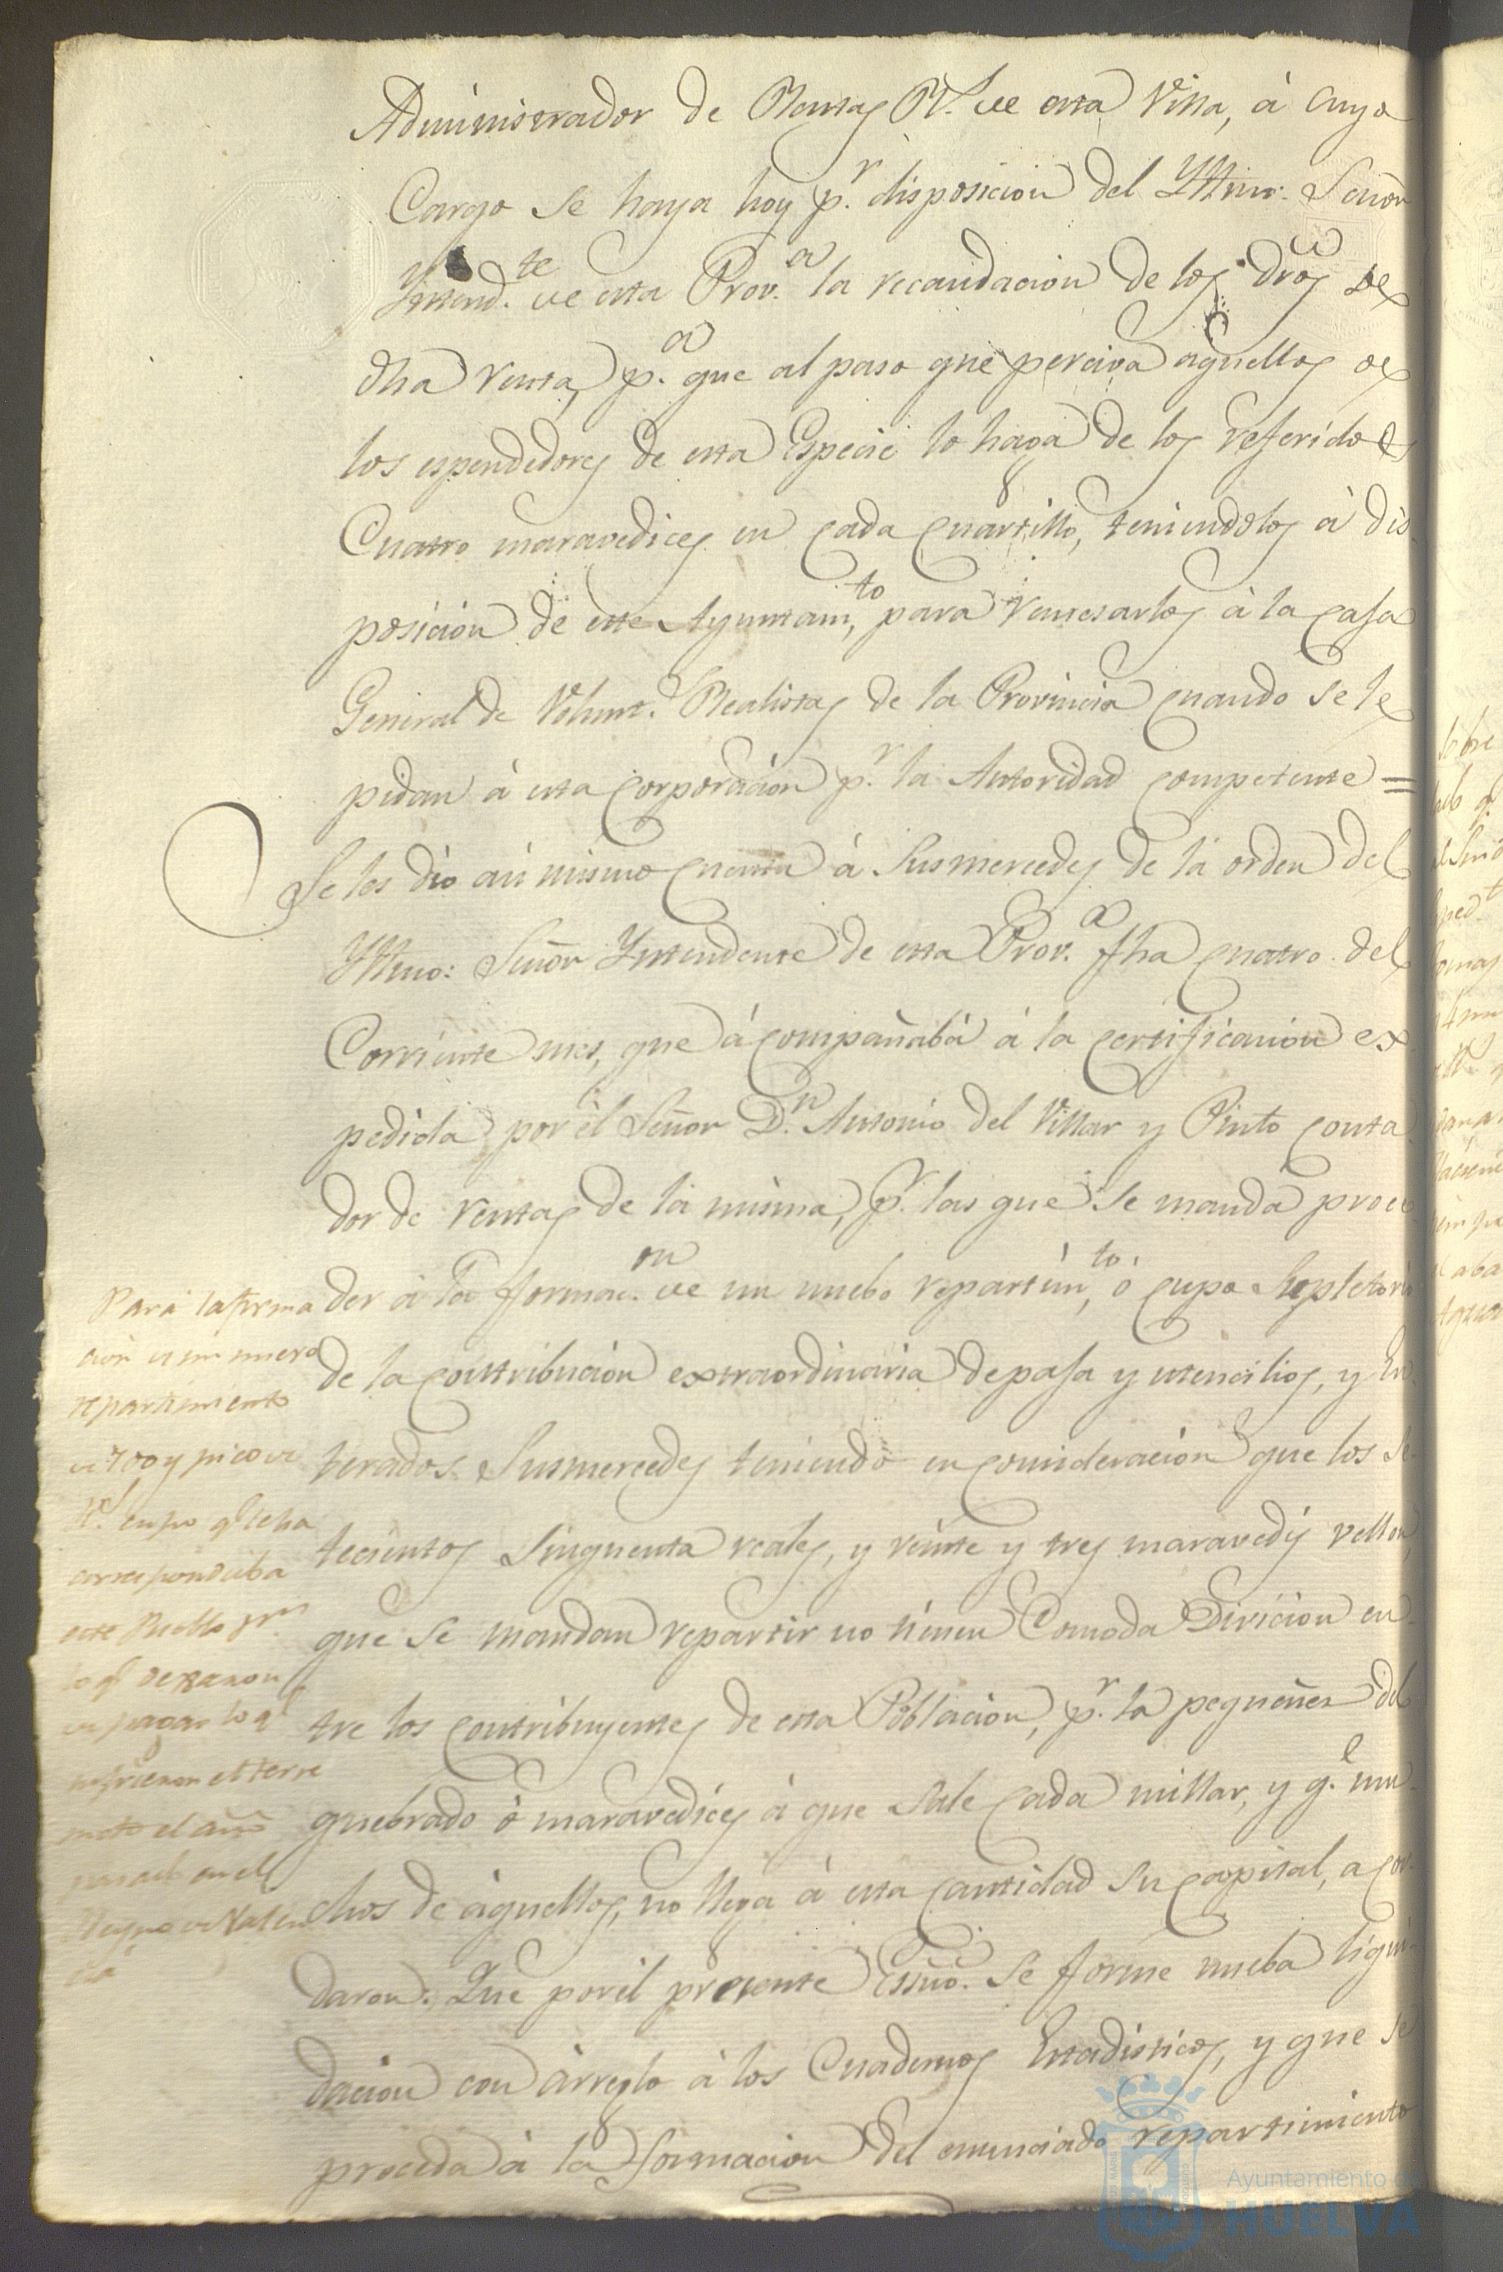 Administrador de Rentas R.s de esta Villa, à cuyo
Cargo se haya hoy p.r disposicion del Yltmo: Señor
Yntend.te de esta Prov.a la recaudacion de los dros de
dha renta, p.a que al paso que perciva aquellos de
los espendedores de esta Especie lo haga de los referidos
Cuatro maravedices en cada quartillo, teniendolos à dis-
posicion de este Ayuntam.to, para remesarlos à la Casa
General de Volunt.s Realistas de la Provincia cuando se le
pidan à esta Corporacion p.r la Autoridad competente =
Se les dio asi mismo cuenta à Susmercedes de la orden del
Yltmo: Señor Yntendente de esta Prov.a fha cuatro del
Corriente mes, que àcompañaba à la certificacion ex
pedida por èl Señor D.n Antonio del Villar y Pinto Conta
dor de rentas de la misma, p.r las que se manda proce
der à la formac.on de un nuebo repartim.to, ò cupo Supletorio
de la contribucion extraordinaria de paja y utencilios, y En
terados Susmercedes teniendo en concideracion que los se
tecientos Sinquenta reales, y veinte y tres maravedis vellon,
que se mandan repartir no tienen Comoda Divicion en
tre los contribuyentes de esta Poblacion, p.r la pequeñez del
quebrado ò maravedices à que sale cada millar, y q.e mu
chos de àquellos, no llega à esta cantidad su capital, acor
daron: Que por èl presente Essno. se forme nueba liqui
dacion con àrreglo à los Cuadernos Estadisticos, y que se
proceda à la formacion del enunciado repartimiento
Para la forma
cion de un nuevo
repartimiento
de 700 y pico de
r.s cupo q.e le ha
correspondido a
este Pueblo p.r
lo q.e dexaron
de pagar los q.e
sufrieron el terre
moto el año
pasado en el
Reyno de Valen
cia
Ayuntamiento de
HUELVA